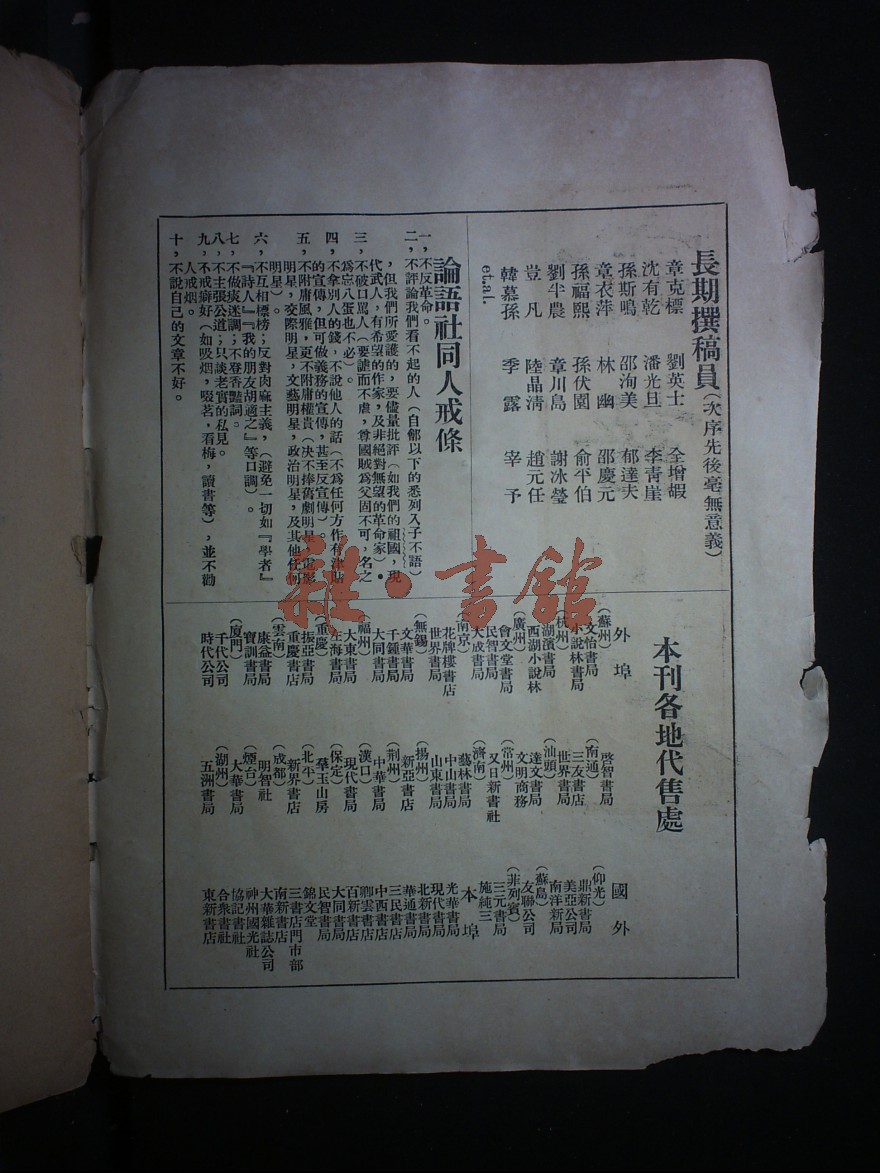 長期撰稿員（次序先後毫無意義）
章克標　劉英士　全增嘏
沈有乾　潘光旦　李青崖
孫斯鳴　邵洵美　郁達夫
章衣萍　林幽　邵慶元
孫福熙　孫伏園　俞平伯
劉半農　章川島　謝冰瑩
豈凡　陸晶清　趙元任
韓慕孫　季露　宰予
et.al.
論語社同人戒條
一，不反革命。
二，不評論我們看不起的人（自鄶以下的悉列入子不語）
，但我們所愛護的，要儘量批評（如我們的祖國，現
代武人，有希望的作家，及非絕對無望的革命家）。
三，不破口罵人（要謔而不虐，尊國賊爲父固不可，名之
爲忘八蛋也不必）。
四，不拿別人的錢，不說他人的話（不爲任何方作有津貼
的宣傳，但可做義務的宣傳，甚至反宣傳）。
五，不附庸風雅，更不附庸權貴（决不捧舊劇明星，電影
明星，交際明星，文藝明星，政治明星，及其他任何
明星）。
六，不互相標榜；反對肉麻主義，（避免一切如『學者』
『詩人』『我的朋友胡適之』等口調）。
七，不做痰迷調；不登香豔詞。
八，不主張公道；只談老實的私見。
九，不戒癖好（如吸烟，啜茗，看梅，讀書等），並不勸
人戒烟。
十，不說自己的文章不好。
本刊各地代售處
外埠
（蘇州）
文怡書局
小說林書局
（杭州）
湖濱書局
西湖小說林
（廣州）
會文堂書局
民智書局
大成書局
（南京）
花牌樓書店
世界書局
（無錫）
文華書局
千鍾書局
大同書局
（福州）
大東書局
左海書局
（重慶）
振亞書局
重慶書店
（雲南）
康益書局
寶訓書局
（廈門）
千代公司
時代公司
啓智書局
（南通）
三友書店
世界書局
（汕頭）
達文書局
文明商務
（常州）
又日新書社
（濟南）
藝林書局
中山書局
山東書局
（揚州）
新亞書店
（荆州）
中華書局
（漢口）
現代書局
（保定）
羣玉山房
（北平）
新界書店
（成都）
明智社
（煙台）
大華書局
（湖州）
五洲書局
國外
（仰光）
鼎新書局
美亞公司
南洋新局
（蘇島）
友聯公司
（菲列賓）
三元書局
施純三
本埠
光華書局
現代書局
北新書局
華通書局
三民書店
中西書店
卿雲書店
百新書店
大同書局
民智書局
錦文堂
三書店門市部
南新書店
大華雜誌公司
神州國光社
協記書社
合衆書社
東新書店
雜·書館